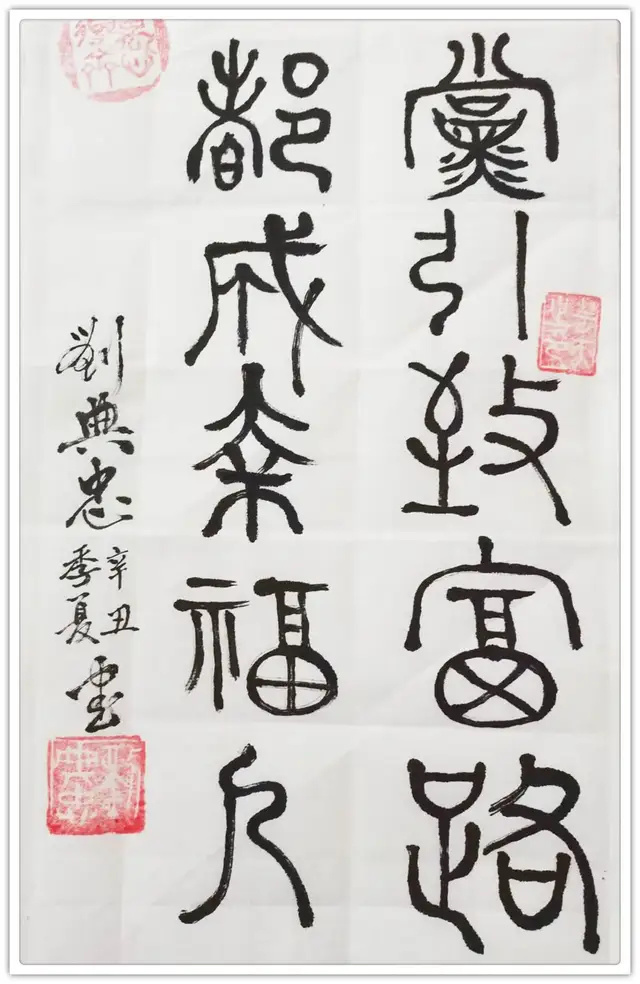 黨引致富路
都成幸福人
劉典忠辛丑季夏書